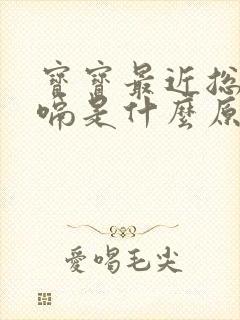 寶寶最近总
喘是什麼原
愛喝毛尖